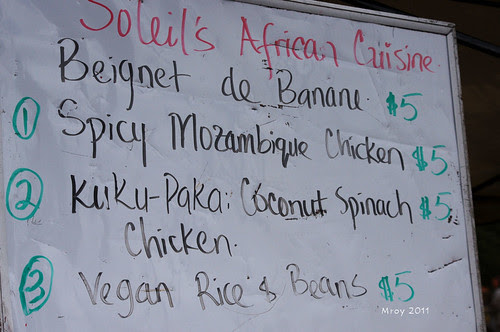 Soleil's African Cuisine
Beignet de Banane $5
1 Spicy Mozambique Chicken $5
2 Kuku-Paka: Coconut Spinach $5
Chicken.
3 Vegan Rice & Beans $5
Mroy 2011